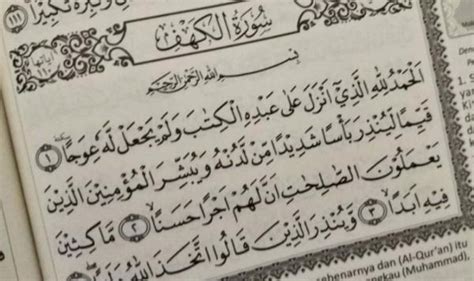 وَكَبِّرْهُ تَكْبِيْرًا ۝١١١
سُوْرَةُ الْكَهْفِ
اٰيَاتُهَا ١١٠
بِسْمِ اللّٰهِ الرَّحْمٰنِ الرَّحِيْمِ
اَلْحَمْدُ لِلّٰهِ الَّذِيْٓ اَنْزَلَ عَلٰى عَبْدِهِ الْكِتٰبَ وَلَمْ يَجْعَلْ لَّهٗ عِوَجًا ۝١
قَيِّمًا لِّيُنْذِرَ بَأْسًا شَدِيْدًا مِّنْ لَّدُنْهُ وَيُبَشِّرَ الْمُؤْمِنِيْنَ الَّذِيْنَ
يَعْمَلُوْنَ الصّٰلِحٰتِ اَنَّ لَهُمْ اَجْرًا حَسَنًا ۝٢ مَّاكِثِيْنَ
فِيْهِ اَبَدًا ۝٣ وَّيُنْذِرَ الَّذِيْنَ قَالُوا اتَّخَذَ اللّٰهُ وَلَدًا
1. S
yan
dan (Al-Qur'an) itu
(Muhammad),